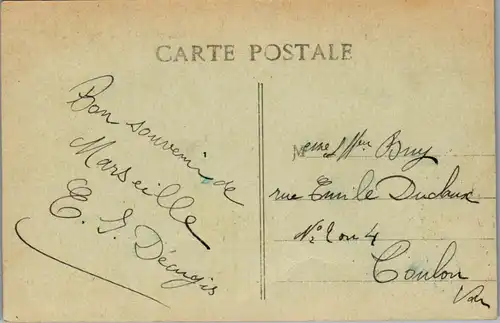 CARTE POSTALE
Bon souvenir de
Marseille
E. G. Déangis
Bruy
rue Emile Duclaux
N° 2 ou 4
Toulon
Var